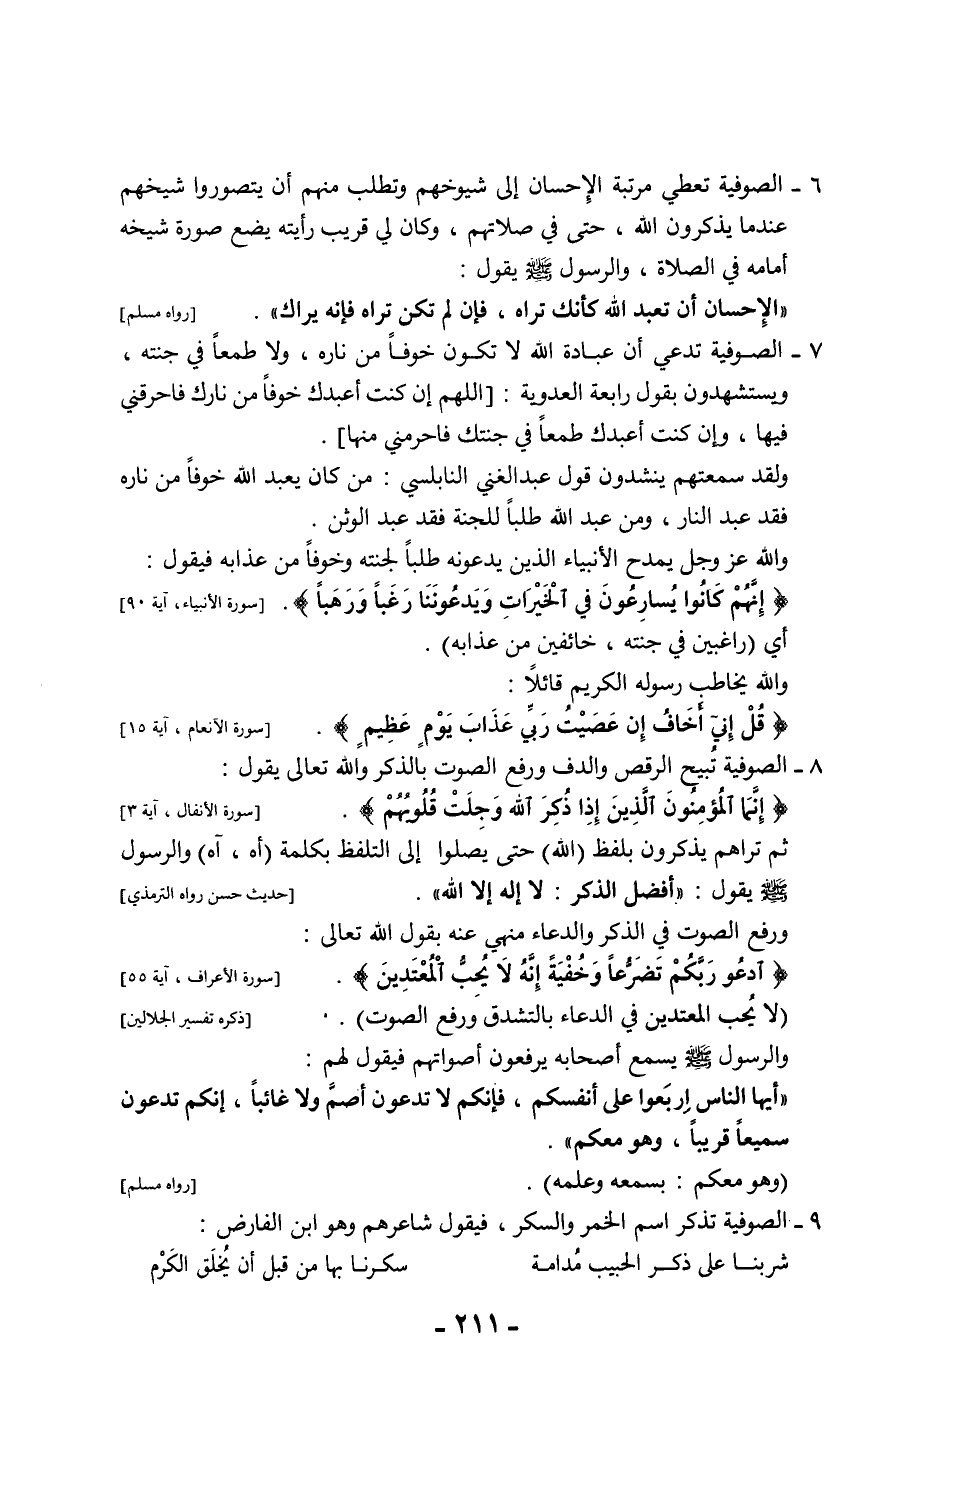 ٦ - الصوفية تعطي مرتبة الإحسان إلى شيوخهم وتطلب منهم أن يتصوروا شيخهم
عندما يذكرون الله ، حتى في صلاتهم ، وكان لي قريب رأيته يضع صورة شيخه
أمامه في الصلاة ، والرسول ﷺ يقول :
«الإحسان أن تعبد الله كأنك تراه ، فإن لم تكن تراه فإنه يراك» . [رواه مسلم]
٧ - الصوفية تدعي أن عبادة الله لا تكون خوفاً من ناره ، ولا طمعاً في جنته ،
ويستشهدون بقول رابعة العدوية : [اللهم إن كنت أعبدك خوفاً من نارك فاحرقني
فيها ، وإن كنت أعبدك طمعاً في جنتك فاحرمني منها] .
ولقد سمعتهم ينشدون قول عبدالغني النابلسي : من كان يعبد الله خوفاً من ناره
فقد عبد النار ، ومن عبد الله طلباً للجنة فقد عبد الوثن .
والله عز وجل يمدح الأنبياء الذين يدعونه طلباً لجنته وخوفاً من عذابه فيقول :
﴿ إِنَّهُمْ كَانُوا يُسارِعُونَ في ٱلْخَيْرَاتِ وَيَدعُونَنَا رَغَباً وَرَهَباً ﴾ . [سورة الأنبياء، آية ٩٠]
أي (راغبين في جنته ، خائفين من عذابه) .
والله يخاطب رسوله الكريم قائلاً :
﴿ قُلْ إِنيٓ أَخَافُ إِن عَصَيْتُ رَبِّي عَذَابَ يَوْمٍ عَظِيمٍ ﴾ . [سورة الأنعام ، آية ١٥]
٨ - الصوفية تُبيح الرقص والدف ورفع الصوت بالذكر والله تعالى يقول :
﴿ إِنَّمَا ٱلْمُؤمِنُونَ ٱلَّذِينَ إِذَا ذُكِرَ ٱلله وَجِلَتْ قُلُوبُهُمْ ﴾ . [سورة الأنفال ، آية ٣]
ثم تراهم يذكرون بلفظ (الله) حتى يصلوا إلى التلفظ بكلمة (أه ، آه) والرسول
ﷺ يقول : «أفضل الذكر : لا إله إلا الله» . [حديث حسن رواه الترمذي]
ورفع الصوت في الذكر والدعاء منهي عنه بقول الله تعالى :
﴿ ٱدعُو رَبَّكُمْ تَضَرُّعاً وَخُفْيَةً إِنَّهُ لَا يُحِبُّ ٱلْمُعْتَدِينَ ﴾ . [سورة الأعراف ، آية ٥٥]
(لا يُحب المعتدين في الدعاء بالتشدق ورفع الصوت) . [ذكره تفسير الجلالين]
والرسول ﷺ يسمع أصحابه يرفعون أصواتهم فيقول لهم :
«أيها الناس إربَعوا على أنفسكم ، فإنكم لا تدعون أصمَّ ولا غائباً ، إنكم تدعون
سميعاً قريباً ، وهو معكم» .
(وهو معكم : بسمعه وعلمه) . [رواه مسلم]
٩ - الصوفية تذكر اسم الخمر والسكر ، فيقول شاعرهم وهو ابن الفارض :
شربنا على ذكر الحبيب مُدامة سكرنا بها من قبل أن يُخلَق الكَرْم
- ٢١١ -